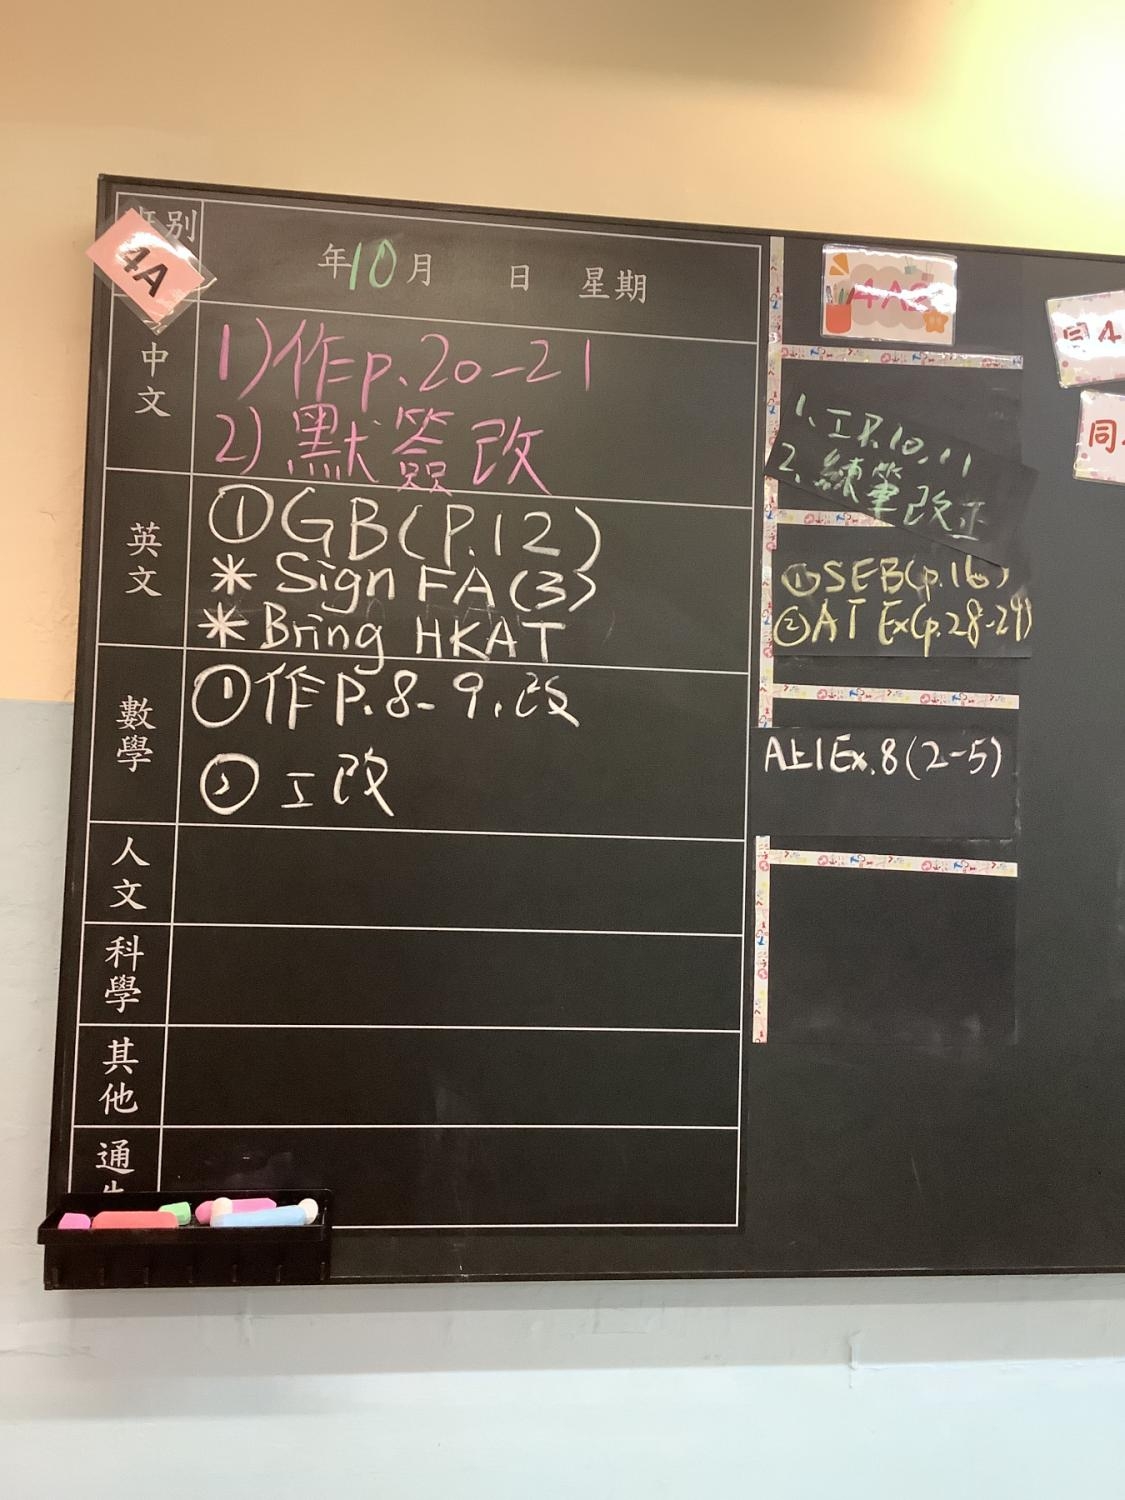 別
4A
年10月 日 星期
中文
1)作p.20-21
2)默簽改
英文
①GB(P.12)
* Sign FA(3)
* Bring HKAT
數學
①作P.8-9,改
②工改
人文
科學
其他
通
1.工P.10,11
2.練筆改正
①SEB(p.16)
②AT Ex(p.28-29)
A上1Ex.8(2-5)
4
同